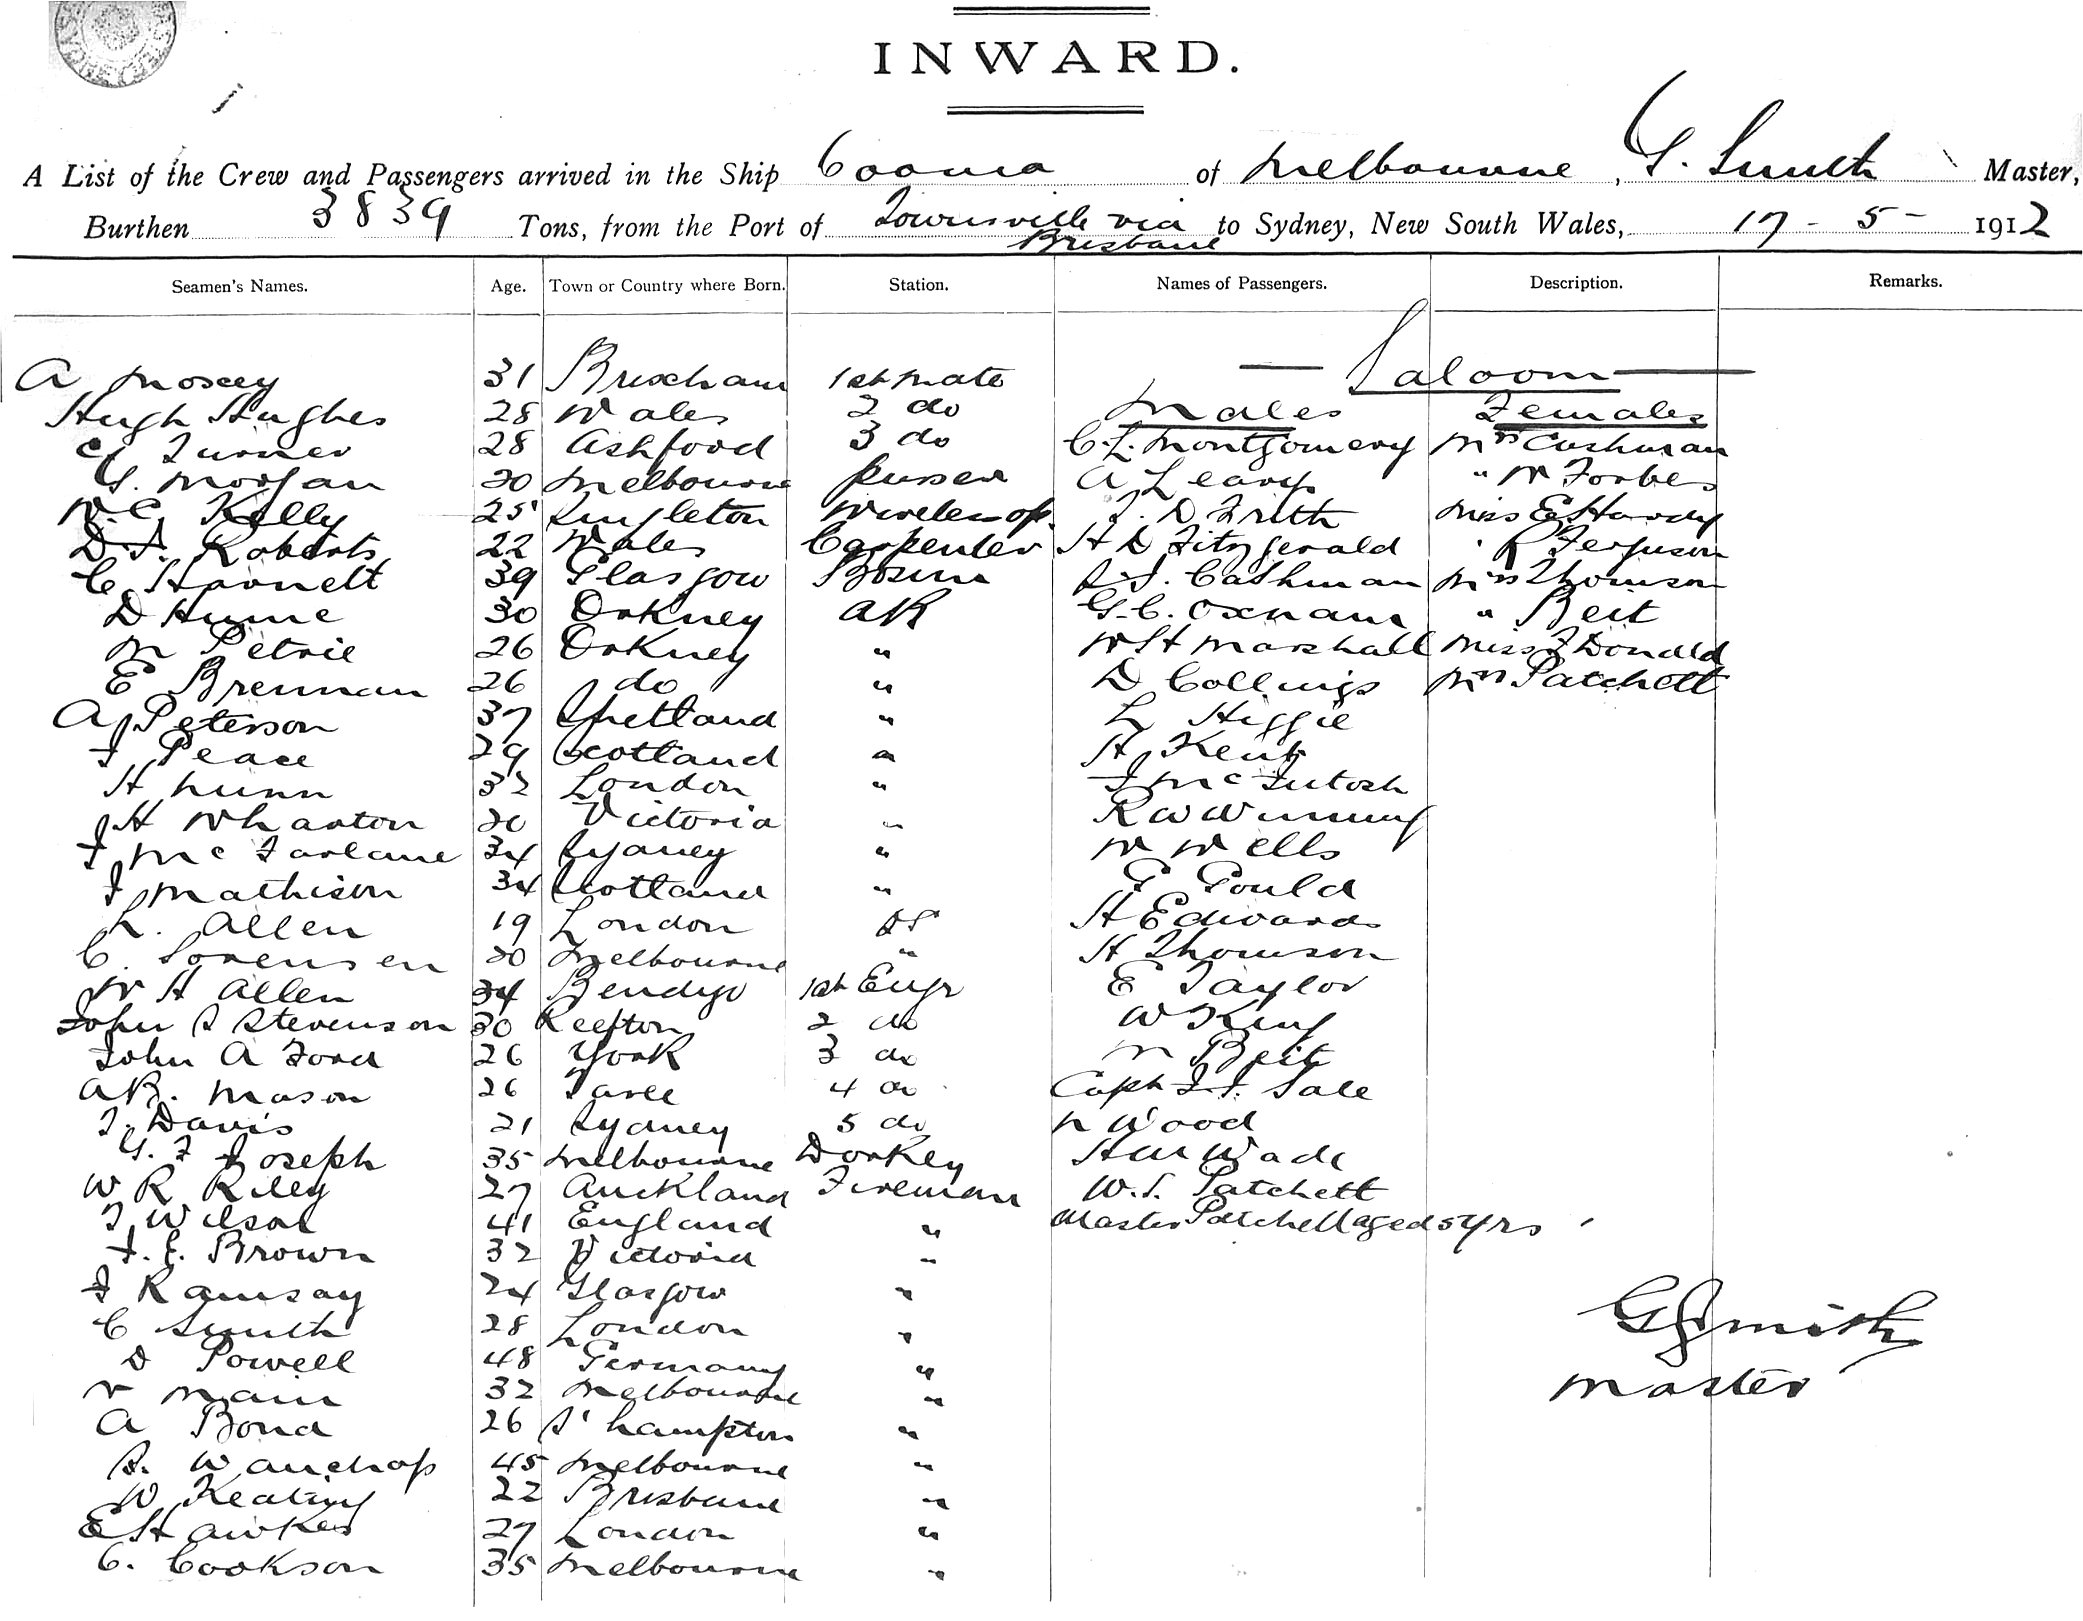 INWARD.
A List of the Crew and Passengers arrived in the Ship Cooma of Melbourne, G. Smith Master,
Burthen 3839 Tons, from the Port of Townsville via Brisbane to Sydney, New South Wales, 17 - 5 - 1912
Seamen's Names. Age. Town or Country where Born. Station. Names of Passengers. Description. Remarks.
Saloom
A Moxey 31 Brixham 1st Mate
Hugh Hughes 28 Wales 2 do Males Females
Turner 28 Ashford 3 do C. L. Montgomery Mrs Cashman
G. Morgan 20 Melbourne Purser A Leary " W Forbes
W. C. Kelly 25 Singleton Wireless op. Frith Miss E Hardy
D. J. Roberts 22 Wales Carpenter H D Fitzgerald " Ferguson
C Harnett 39 Glasgow Bosun Cashman Mrs Thomson
D Hume 30 Orkney AB G. C. Oxnam " Beit
M Petrie 26 Orkney " W H Marshall Miss J Donald
E Brennan 26 do " D Collings Mrs Patchett
A Peterson 37 Shetland " L Higgie
J Peace 29 Scotland " H Kent
H Nunn 32 London " J McIntosh
J H Wharton 20 Victoria " R W Winning
J McFarlane 34 Sydney " W Wells
J Mathison 34 Scotland " G Gould
L. Allen 19 London OS H Edwards
C. Sorensen 20 Melbourne " H Thomson
W H Allen 34 Bendigo 1st Engr E Taylor
John S Stevenson 30 Reefton 2 do W King
John A Ford 26 York 3 do Beit
A B. Mason 26 Taree 4 do Capt Sale
J. Davis 21 Sydney 5 do N Wood
G. F Joseph 35 Melbourne Donkey Wade
W R Riley 27 Auckland Fireman W. S. Patchett
J Wilson 41 England " Master Patchett aged 5 yrs
J. E. Brown 32 Victoria "
J Ramsay 24 Glasgow "
C Smith 28 London "
G Smith
D Powell 48 Germany "
Main 32 Melbourne "
Master
A Bond 26 S'hampton "
S. Wauchop 45 Melbourne "
W Keating 22 Brisbane "
E Hawkes 27 London "
C. Cookson 35 Melbourne "